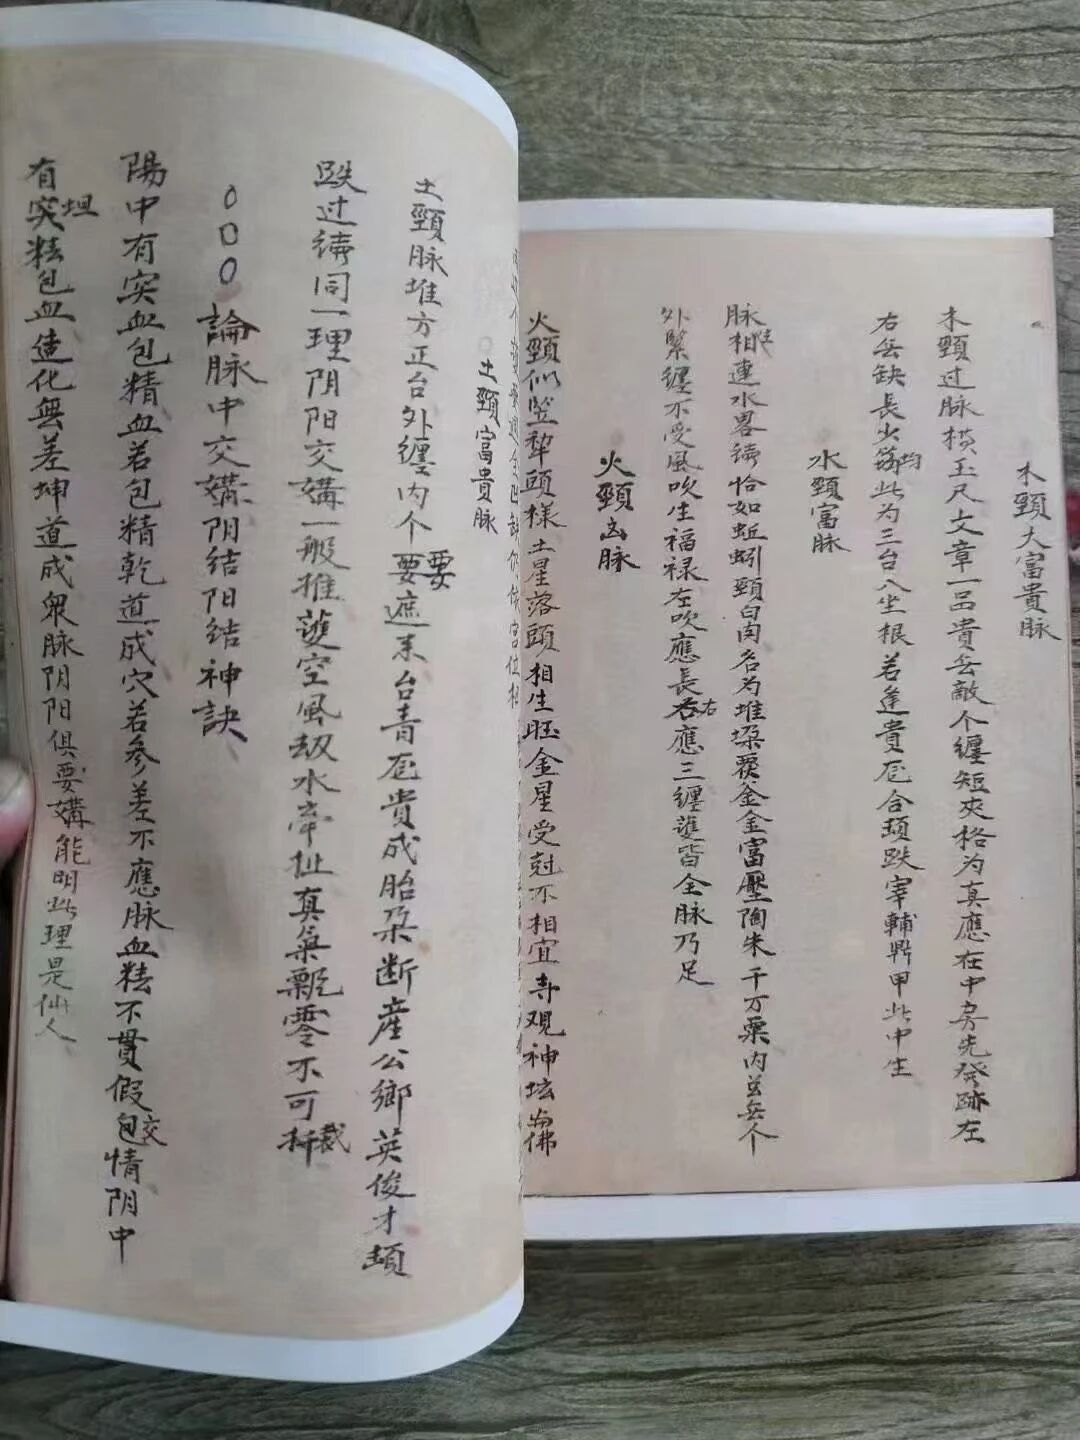 木頸大富貴脉
木頸过脉横玉尺文章一品貴兵敵个纏短夾格为真應在中房先發跡左
右兵缺長少均此为三台八坐根若逢貴卮合頭跌宰輔鼎甲此中生
水頸富脉
脉相連水畧禱恰如蚯蚓頸自南名为堆垜覆釜金富壓陶朱千万粟内兵个
外緊纏不受風吹生福禄左吹應長右應三纏護皆全脉乃足
火頸凶脉
火頸似竖犂頭樣土星落頭相生旺金星受尅不相宜寺观神坛佛
土頸富貴脉
土頸脉堆方正台外纏内个要遮來台青卮貴成胎朶断産公鄉英俊才頭
跌过禱同一理阴阳交媾一般推護空風劫水牽扯真氣飄零不可裁
○口○論脉中交媾阴结阳结神訣
陽中有突血包精血若包精乾道成穴若参差不應脉血精不貫假交情阴中
有坦精包血造化無差坤道成衆脉阴阳俱要媾能明此理是仙人